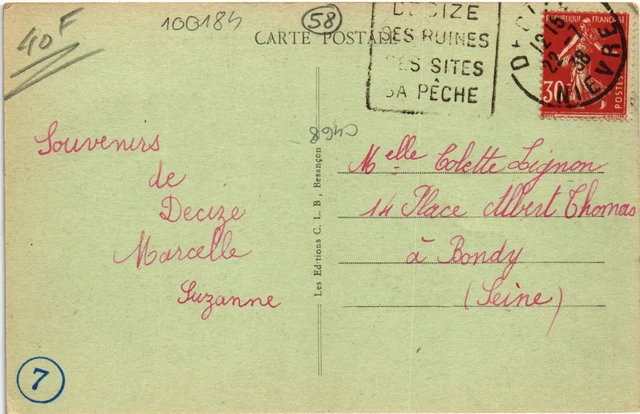 40F
100184
58
CARTE POSTALE
DECIZE
SES RUINES
SES SITES
SA PÊCHE
NIEVRE
12 15
22 7
38
REPUBLIQUE FRANÇAISE
30
POSTES
C468
Souvenirs
de
Decize
Marcelle
Suzanne
Les Editions C. L. B., Besançon
Melle Colette Lignon
14 Place Albert Thomas
à Bondy
(Seine)
7